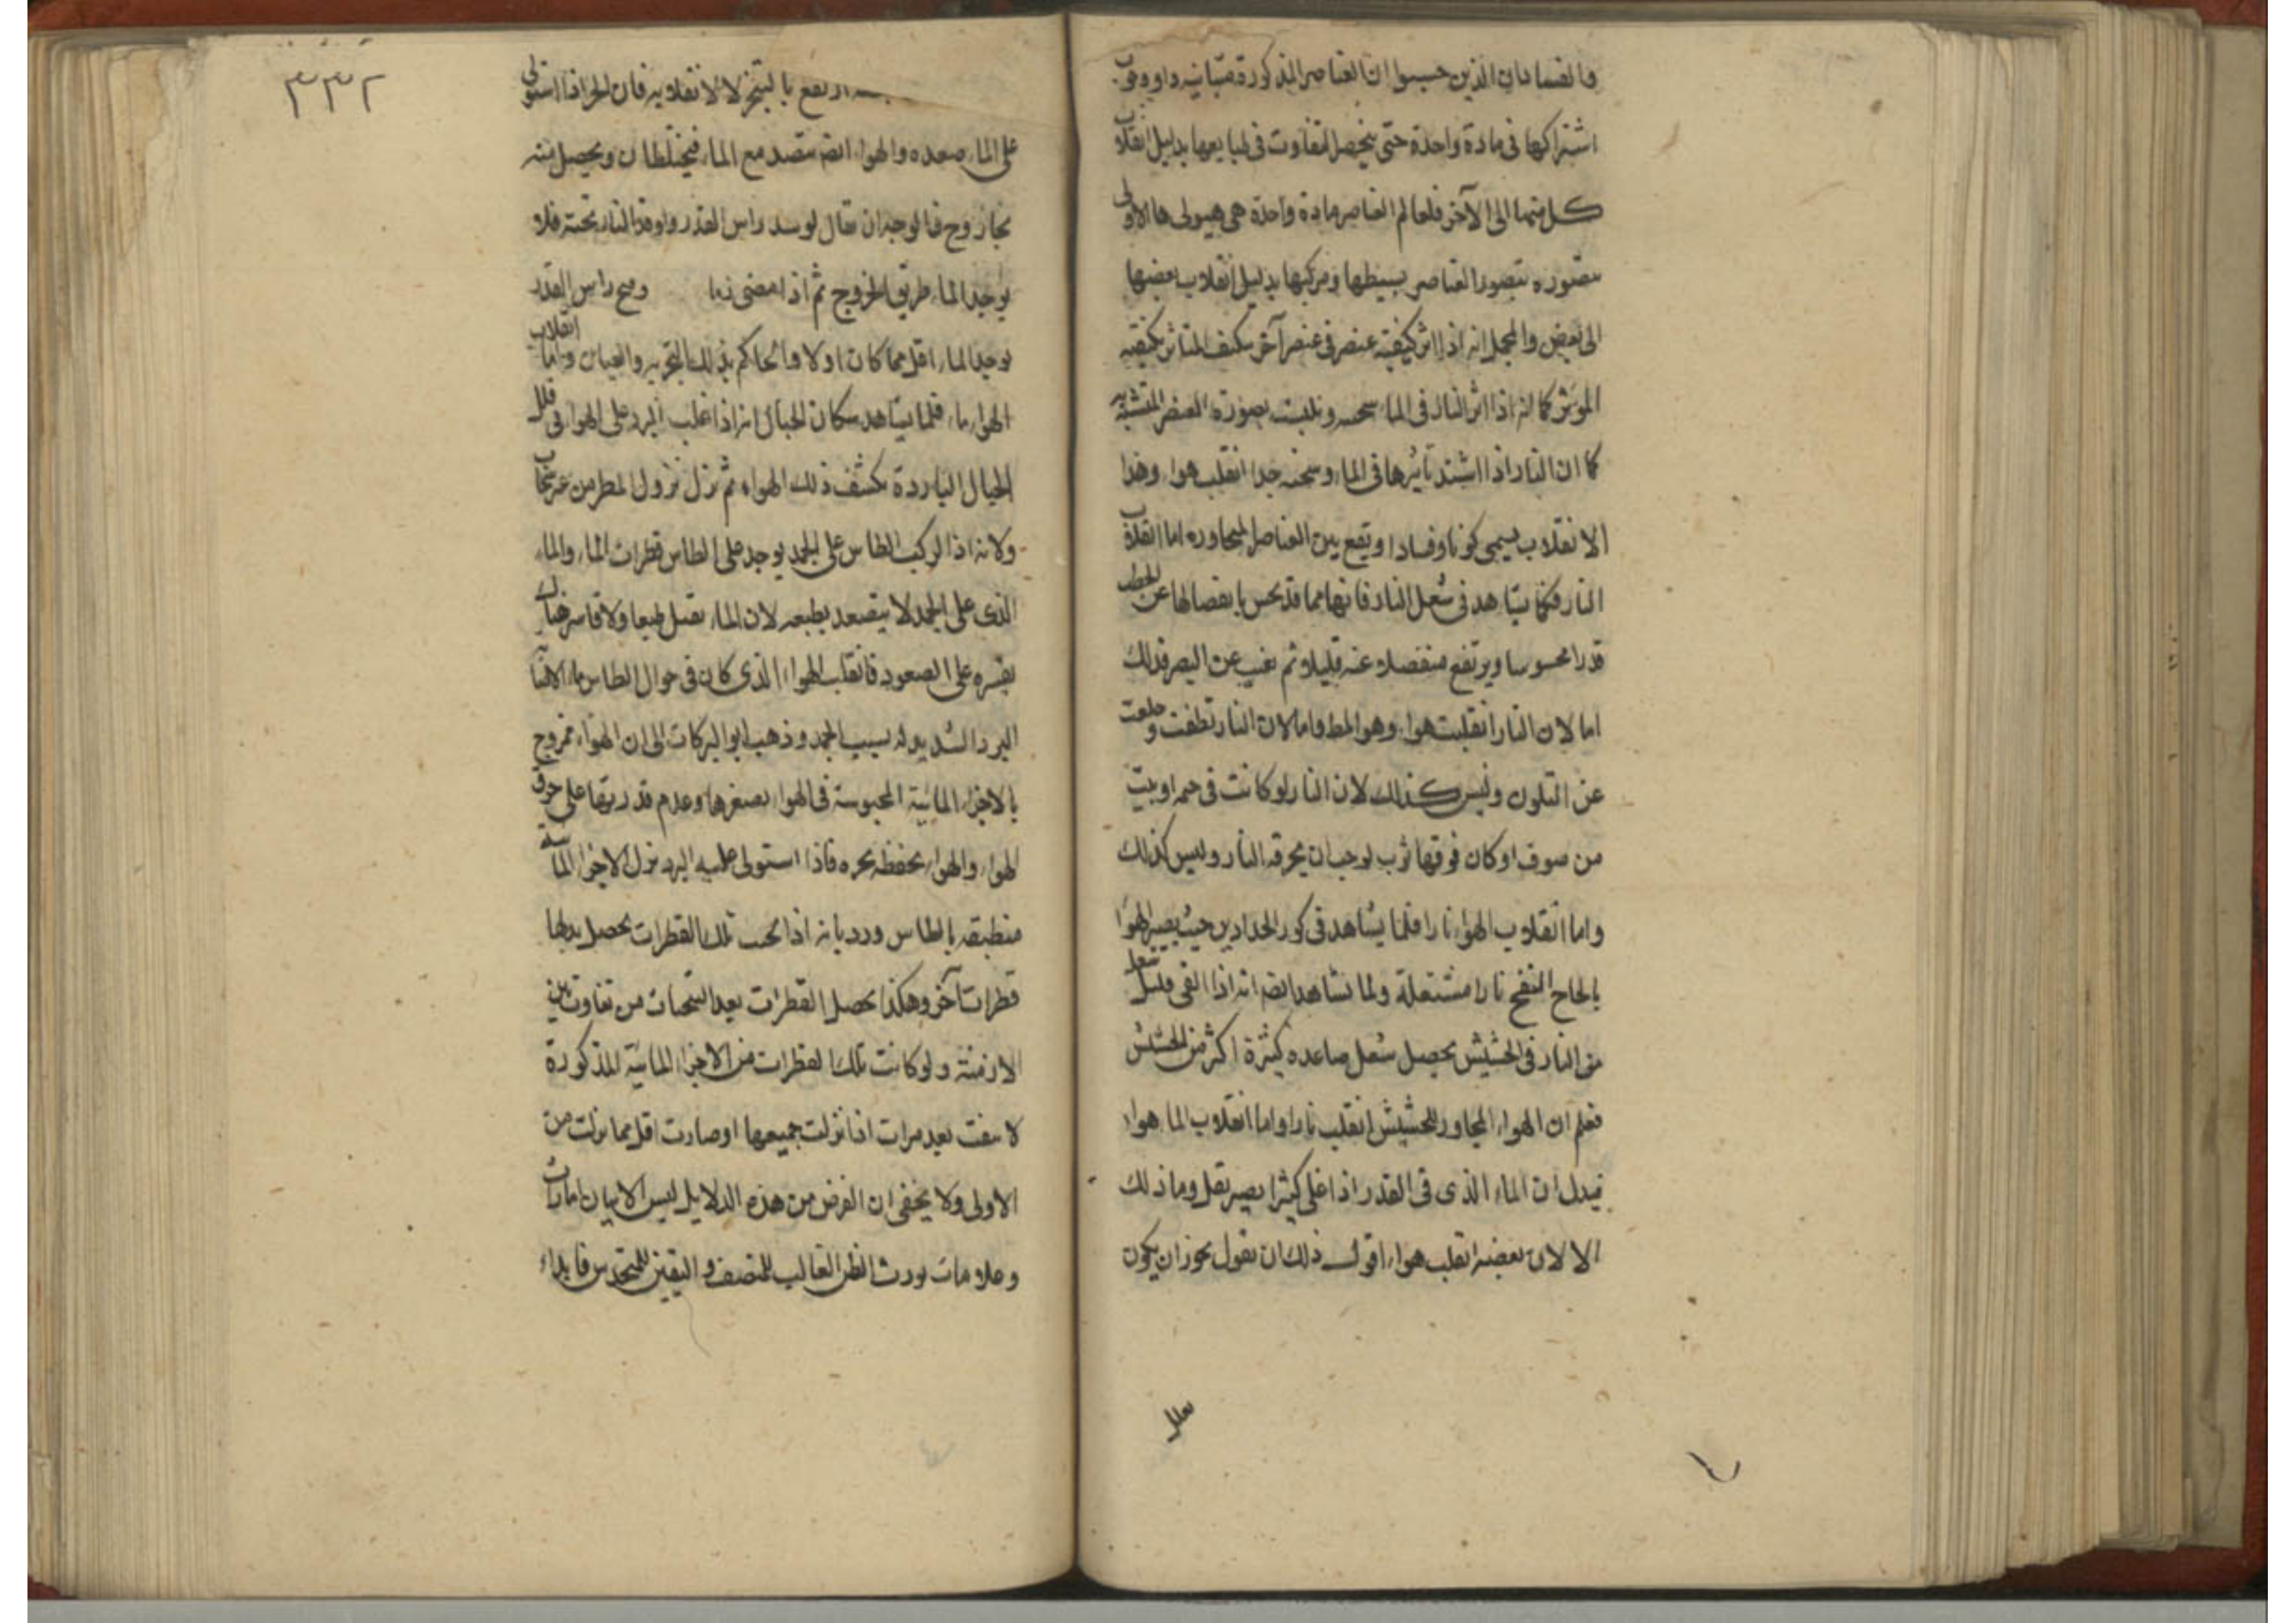 والفسادان الذين حسبوا ان العناصر المذكورة متباينه
اشتراكها فى مادة واحدة حتى يتحصل التفاوت فى طبايعها بدليل انقلاب
كل منها الى الآخر فلعالم العناصر مادة واحدة هى هيولى ها الاولى
متصوره بصور العناصر بسيطها ومركبها بدليل انقلاب بعضها
الى بعض والمجمل انه اذا اثر كيفية عنصر فى عنصر آخر تكيف المتاثر بكيفية
الموثر كما انه اذا اثر النار فى الماء سخنه بصورة العنصر
كما ان النار اذا اشتد تاثيرها فى الماء وسخنه جدا انقلب هواء وهذا
الانقلاب يسمى كونا وفسادا ويقع بين العناصر المتجاوره اما انقلاب
النار فكما يشاهد فى شعل النار فانها مما قد يحس بانفصالها عن الحطب
قدرا محسوسا ويرتفع منفصلا عنه قليلا ثم يغيب عن البصر فذلك
اما لان النار انقلبت هواء وهو المط واما لان النار تطفت وخلعت
عن التلون وليس كذلك لان النار لو كانت فى او بيت
من صوف او كان فوقها ثوب لوجب ان يحرقه النار وليس كذلك
واما انقلاب الهواء نارا فلما يشاهد فى كور الحدادين حيث يصير الهواء
بالحاح النفخ نارا مشتعلة ولما نشاهد ايضا انه اذا القى قليل شعل
من النار فى الحشيش يحصل شعل صاعده كثيرة اكثر من الحشيش
فعلم ان الهواء المجاور للحشيش انقلب نارا واما انقلاب الماء هواء
فيدل ان الماء الذى فى القدر اذا غلى كثيرا يصير يقل وما ذلك
الا لان بعضه انقلب هواء اقول ذلك ان نقول يجوز ان يكون
٣٣٢
ارتفع بالتبخر لا لانقلابه فان الحر اذا استولى
على الماء صعده والهواء ايضا متصعد مع الماء فيختلطان ويحصل منه
بخار وح فالوجه ان يقال لو سد راس القدر واوقد النار تحته فلا
يوجد الماء طريق الخروج ثم اذا مضى زمانا وفتح راس القدر
يوجد الماء اقل مما كان اولا والحاكم بذلك التجربه والعيان واما انقلاب
الهواء ماء فلما يشاهد سكان الجبال انه اذا غلب البرد على الهواء فى قلل
الجبال الباردة يكثف ذلك الهواء ثم نزل نزول المطر من غير سحاب
ولانه اذا اركب الطاس على الجمد يوجد على الطاس قطرات الماء والماء
الذى على الجمد لا يتصعد بطبعه لان الماء ثقيل طبعا ولا قاسر هناك
يقسره على الصعود فانقلب الهواء الذى كان فى حوالى الطاس ماء
البرد الشديد له بسبب الجمد وذهب ابو البركات الى ان الهواء ممزوج
بالاجزاء المائية المحبوسة فى الهواء بصغرها وعدم قدرتها على خرق
الهواء والهواء يحفظه بحره فاذا استولى عليه البرد نزل الاجزاء المائية
منطبقه بالطاس ورد بانه اذا تلك القطرات يحصل بدلها
قطرات آخر وهكذا يحصل القطرات بعد من تفاوت بين
الازمنة ولو كانت تلك القطرات من الاجزاء المائية المذكورة
بعد مرات اذا نزلت جميعها او صارت اقل مما نزلت من
الاولى ولا يخفى ان الغرض من هذه الدلايل ليس الا بيان امارات
وعلامات يورث الظن الغالب للمنصف و اليقين للمتحدس